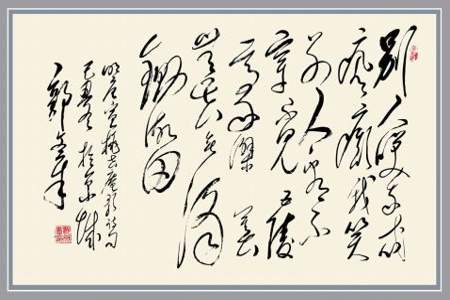 别人笑我忒
疯癫我笑
他人看不
穿不见五陵
豪杰墓
无花无酒
锄作田
明唐寅桃花庵歌诗句
己丑冬于京城